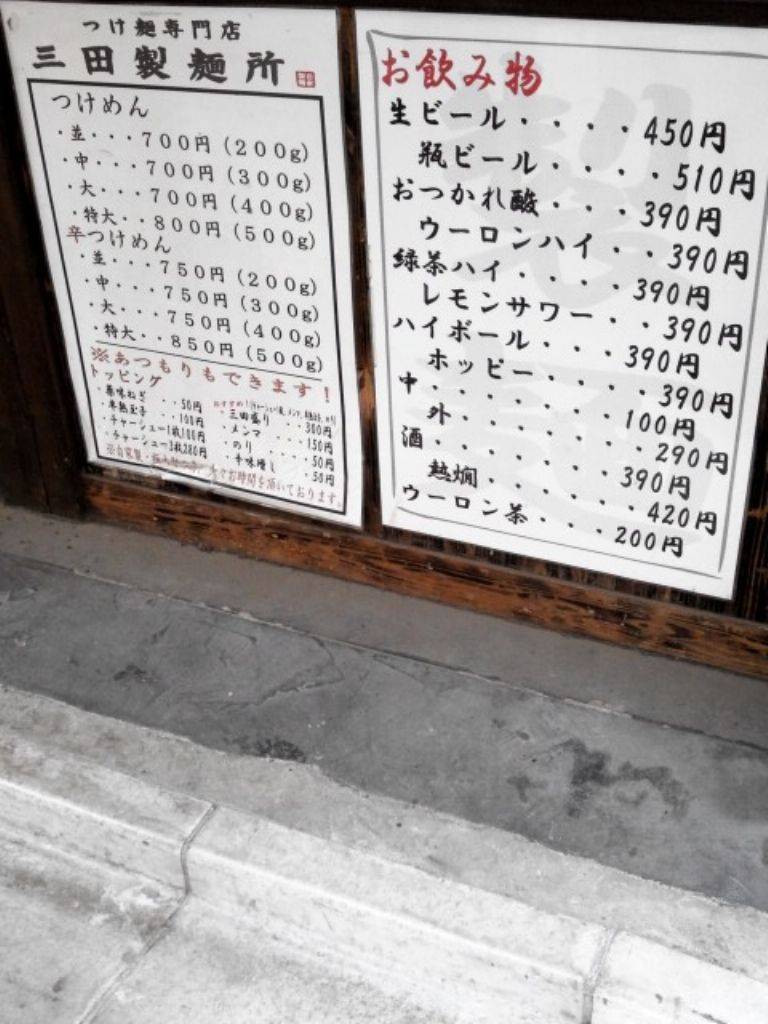 つけ麺専門店
三田製麺所
つけめん
・並・・・700円(200g)
・中・・・700円(300g)
・大・・・700円(400g)
・特大・・800円(500g)
辛つけめん
・並・・・750円(200g)
・中・・・750円(300g)
・大・・・750円(400g)
・特大・・850円(500g)
※あつもりもできます!
トッピング
・薬味ねぎ・・50円
・半熟玉子・・100円
・チャーシュー1枚100円
・チャーシュー3枚280円
・三田盛り・・300円
・メンマ・・・150円
・のり・・・・50円
・辛味増し・・50円
お時間を頂いております。
お飲み物
生ビール・・・・450円
瓶ビール・・・・510円
おつかれ酸・・・390円
ウーロンハイ・・390円
緑茶ハイ・・・・390円
レモンサワー・・390円
ハイボール・・・390円
ホッピー・・・・390円
中・・・・・・・100円
外・・・・・・・290円
酒・・・・・・・390円
熱燗・・・・・・420円
ウーロン茶・・・200円
製麺